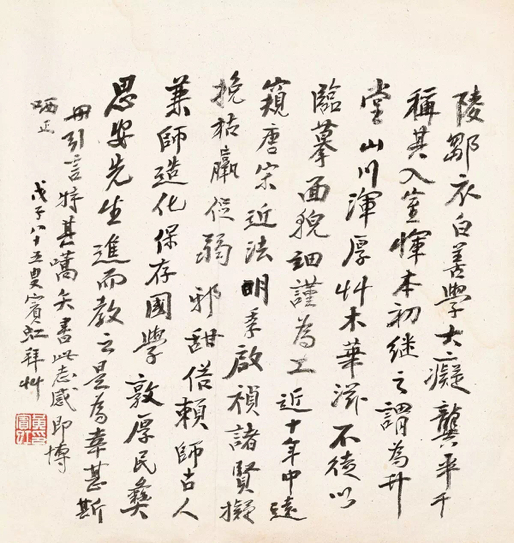 陵鄒衣白善學大癡龔半千
稱其入室惲本初繼之謂為升
堂山川渾厚艸木華滋不徒以
臨摹面貌細謹為工近十年中遠
窺唐宋近法明季啟禎諸賢擬
挽枯羸促弱邪甜俗賴師古人
兼師造化保存國學敦厚民彝
思安先生進而教之是為幸甚斯
冊引言特其嚆矢書此志感即博
哂正
戊子八十五叟賓虹拜艸